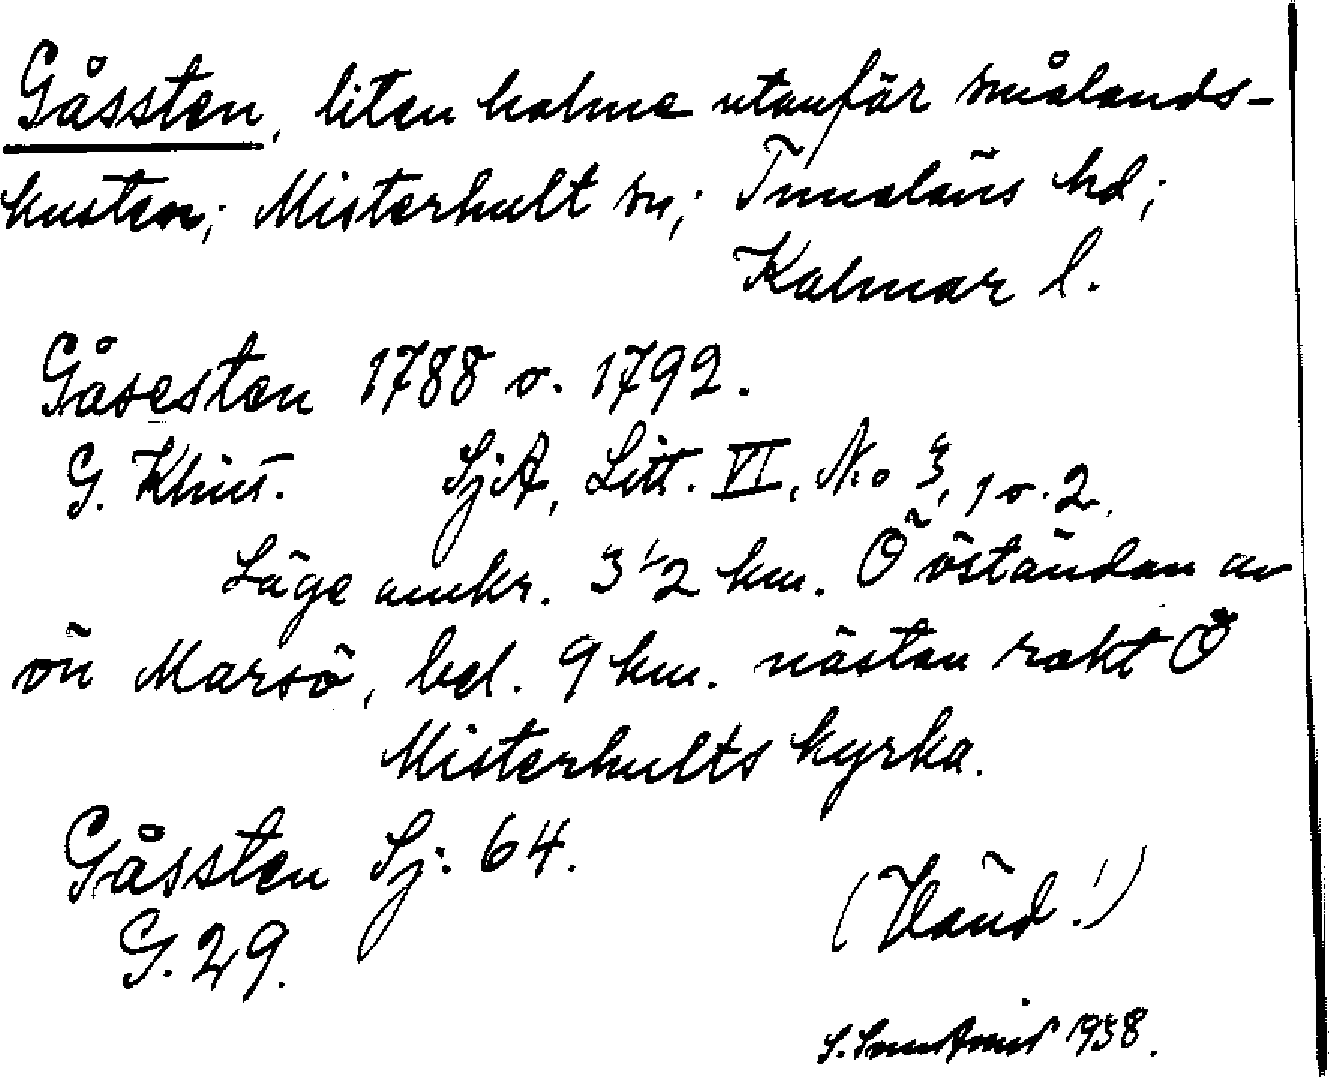 Gåssten, liten holme utanför smålands-
kusten; Misterhult sn; Tunaläns hd;
Kalmar l.
Gåsesten 1788 o. 1792.
G. Klint. SjA, Litt. VI, No 3, 1 o. 2.
Läge omkr. 3 1/2 km. Ö öständan av
ön Marsö, bel. 9 km. nästan rakt Ö
Misterhults kyrka.
Gåssten Sj. 64.
G. 29.
(Vänd!)
S. 1938.